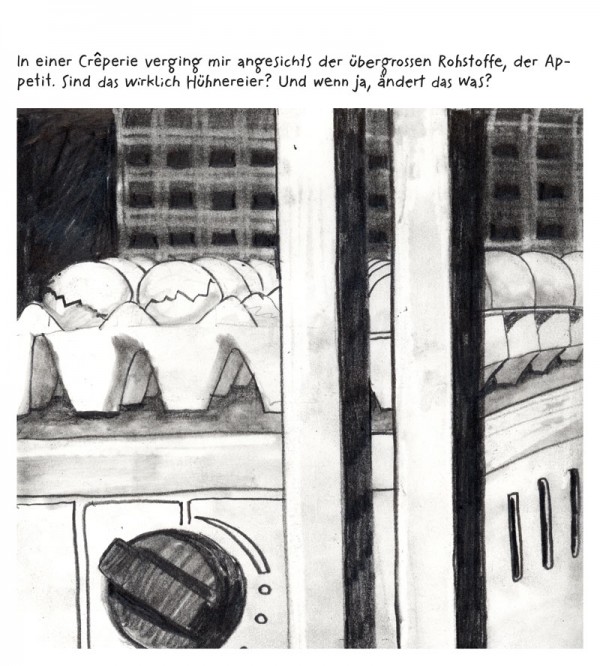 In einer Crêperie verging mir angesichts der übergrossen Rohstoffe, der Ap-
petit. Sind das wirklich Hühnereier? Und wenn ja, ändert das was?